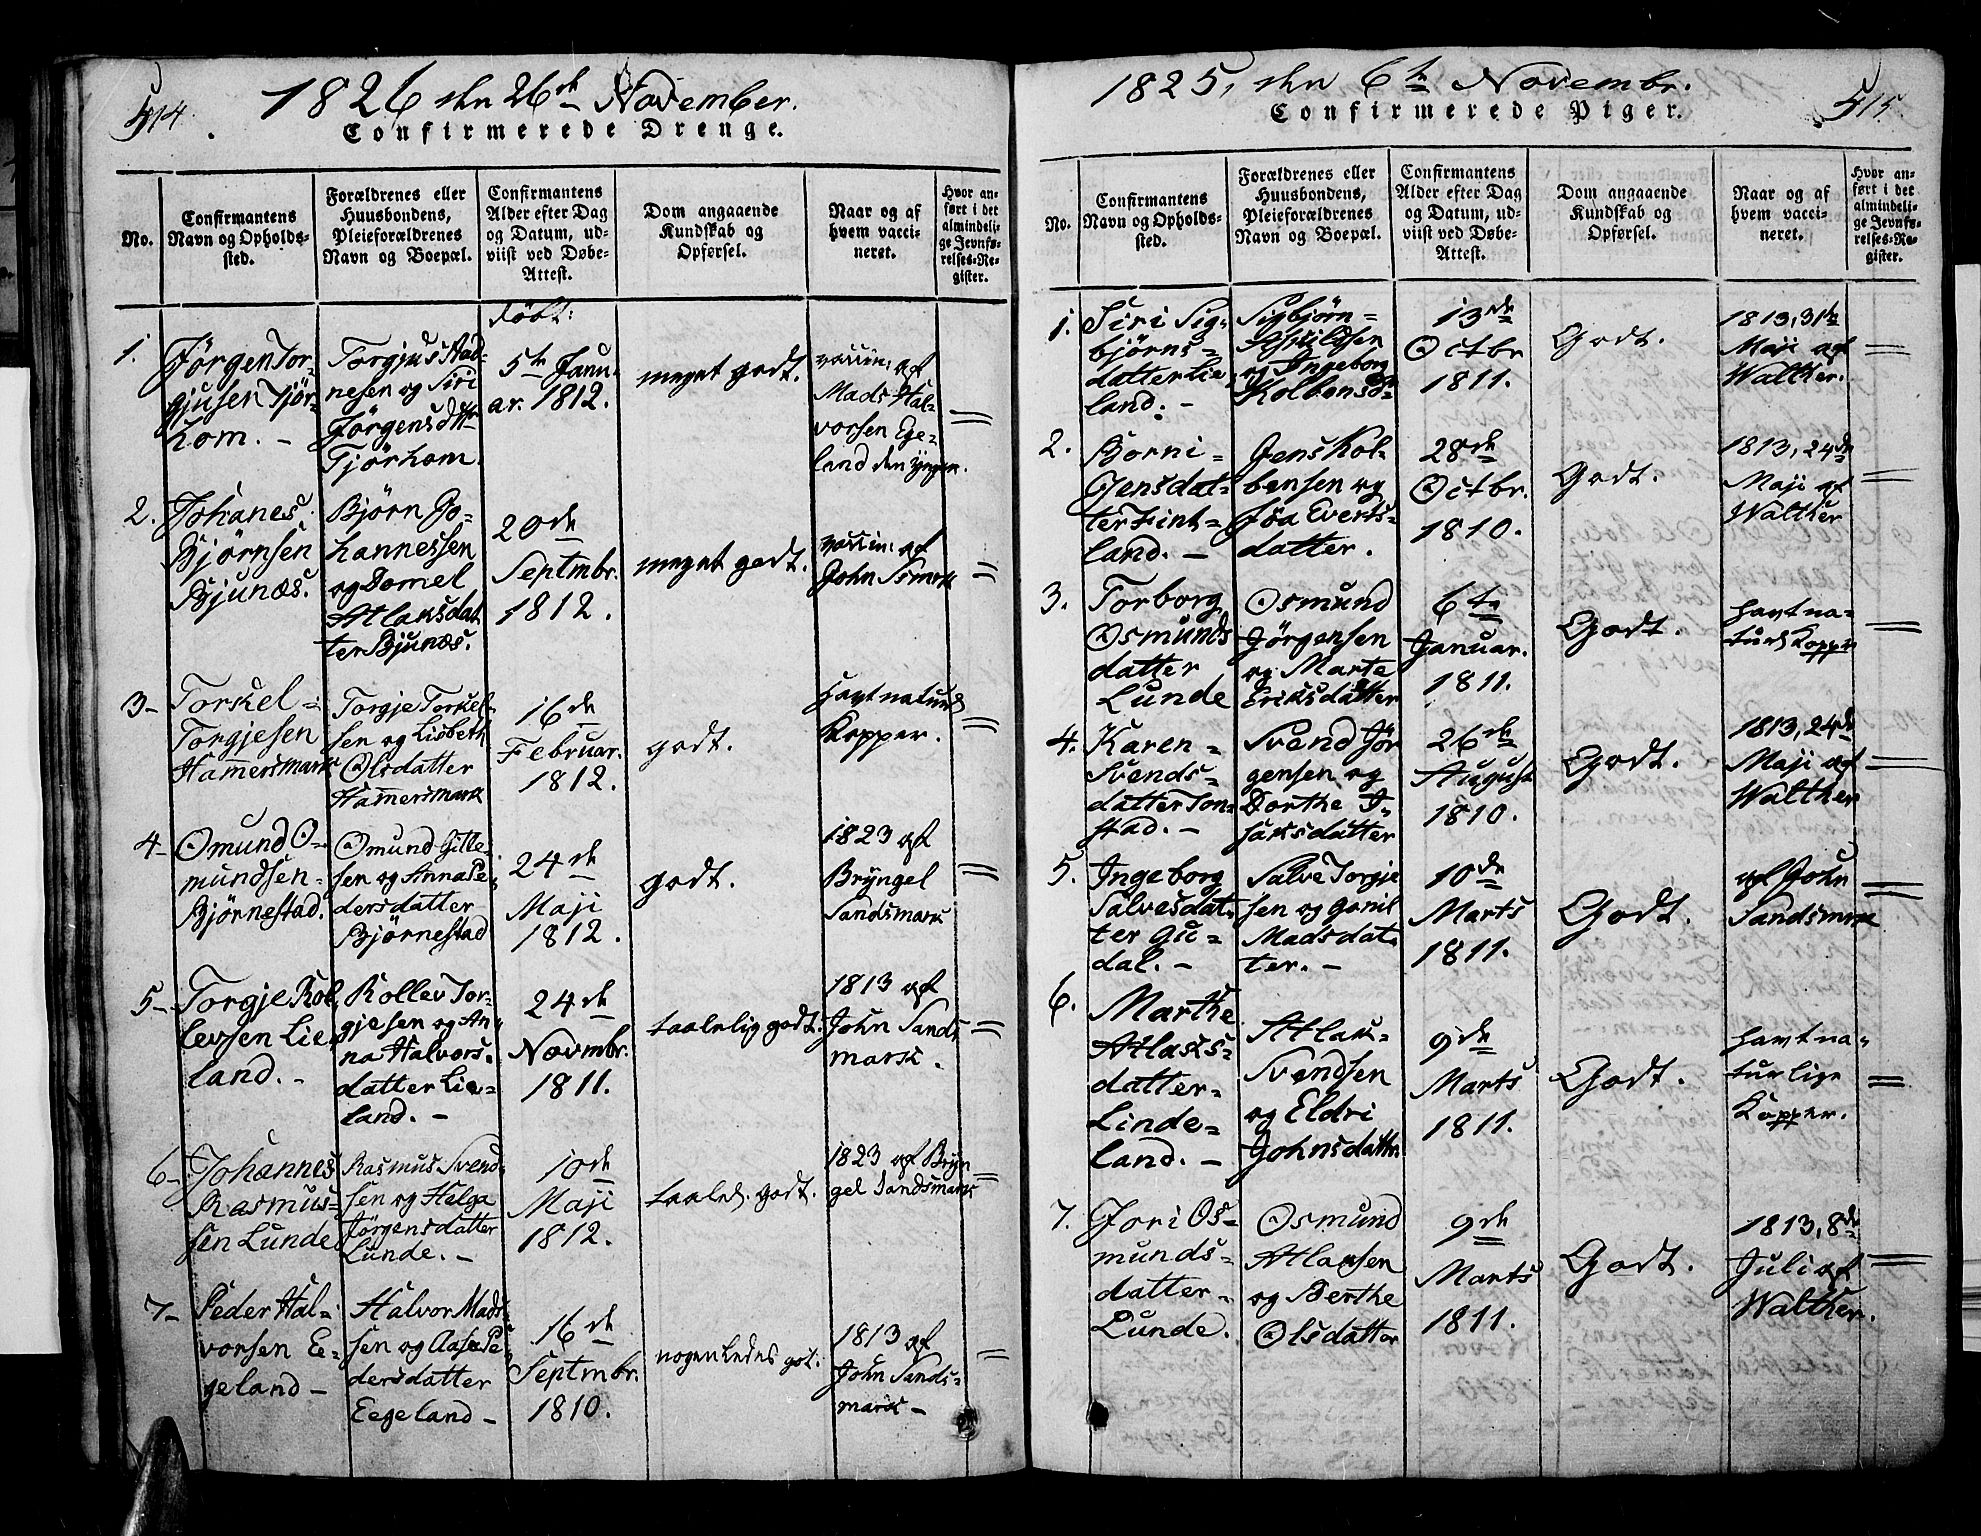 514.
1826 den 26de November.
Confirmerede Drenge.
No.
Confirmantens
Navn og Opholds-
sted.
Forældrenes eller
Huusbondens,
Pleieforældrenes
Navn og Boepæl.
Confirmantens
Alder efter Dag
og Datum, ud-
viist ved Døbe-
Attest.
Dom angaaende
Kundskab og
Opførsel.
Naar og af
hvem vacci-
neret.
Hvor an-
ført i det
almindeli-
ge Jevnfø-
relses-Re-
gister.
1.
Jørgen Tor-
gjusen Tjør-
hom. -
Torgjus Aad-
nesen og Siri
Jørgensdttr
Tjørhom.
døbt:
5te Janu-
ar. 1812.
meget godt.
vaccin: af
Mads Hal-
vorsen Ege-
land den yngen.
2.
Johanes
Bjørnsen
Bjunæs.
Bjørn Jo-
hannessen
og Domel
Atlaksdat
ter Bjunæs.
20de
Septmbr.
1812.
meget godt.
vaccin: af
John Smrk
3-
Torkel =
Torgjesen
Hamersmark
Torgje Torkel-
sen og Lisbeth
Olsdatter
Hamersmark
16de
Februar.
1812.
godt.
havt naturl
Kopper.
4-
Omund O-
mundsen-
Bjørnestad.
Omund Gitle-
sen og Anna Pe-
dersdatter
Bjørnestad
24de
Maji
1812.
godt.
1823 af
Bryngel
Sandsmark
5-
Torgje Rol
levsen Lie-
land. -
Rollev Tor-
gjesen og An-
na Halvors-
datter Lie-
land. -
24de
Novmbr.
1811.
taalelig godt.
1813 af
John Sands
mark.
6-
Johannes
Rasmus-
sen Lunde
Rasmus Svend-
sen og Helga
Jørgensdatter
Lunde. -
10de
Maji
1812.
taalel. godt.
1823 af Bryn
gel Sandsmark
7-
Peder Hal-
vorsen Ee-
geland -
Halvor Mads
sen og Aase Pe-
dersdatter
Eegeland -
16de
Septmbr.
1810.
nogenledes got:
1813 af
John Sands-
mark -
515.
1825, den 6te Novembr.
Confirmerede Piger.
No.
Confirmantens
Navn og Opholds-
sted.
Forældrenes eller
Huusbondens,
Pleieforældrenes
Navn og Boepæl.
Confirmantens
Alder efter Dag
og Datum, ud-
viist ved Døbe-
Attest.
Dom angaaende
Kundskab og
Opførsel.
Naar og af
hvem vacci-
neret.
Hvor an-
ført i det
almindeli-
ge Jevnfø-
relses-Re-
gister.
1.
Siri Sig-
bjørns-
datter Lie
land. -
Sigbjørn =
Aschildsen
og Ingeborg
Kolbensd.
13de
Octbr
1811.
Godt.
1813, 31te
Maji af
Walther.
2.
Borni-
Jensdat-
ter Fint-
land. -
Jens Kol-
bensen og
Jøa Everts-
datter.
28de
Octbr.
1810.
Godt.
1813, 24de
Maji af
Walther
3.
Torborg
Osmunds
datter
Lunde
Osmund
Jørgensen
og Marte
Eriksdatter
6te
Januar.
1811.
Godt.
havt na-
turl Kopper
4.
Karen -
Svends-
datter Ton-
stad. -
Svend Jør
gensen og
Dorthe I-
saksdatter
26de
August
1810.
Godt.
1813, 24de
Maji af
Walther
5.
Ingeborg
Salvesdat-
ter Gu-
dal. -
Salve Torgje
sen og Gonil
Madsdat-
ter. -
10de
Marts
1811.
Godt.
af John
Sandsmrk
6.
Marthe
Atlaks-
datter-
Linde-
land. -
Atlak-
Svendsen
og Eldri
Johnsdatter
9de
Marts
1811.
Godt.
havt na-
turlige
Kopper.
7.
Jori Os-
munds-
datter-
Lunde.
Osmund
Atlaksen
og Berthe
Olsdatter
9de
Marts
1811.
Godt.
1813, 8de
Juli af
Walther.